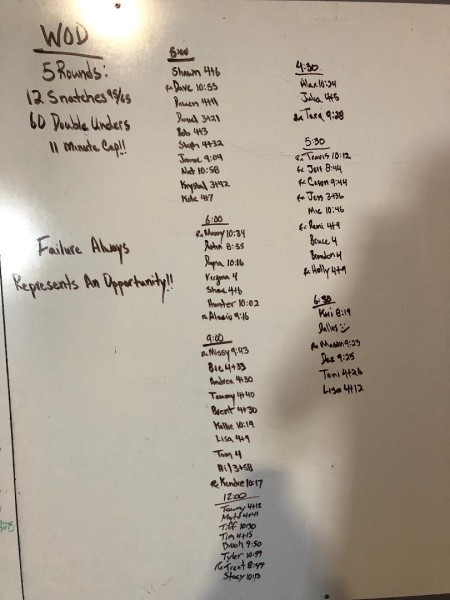 WOD
5 Rounds:
12 Snatches 95/65
60 Double Unders
11 Minute Cap!!
Failure Always
Represents An Opportunity!!
5:00
Shawn 4+6
Rx Dave 10:55
4+11
3+21
Bob 4+3
Steph 4+32
9:09
Nat 10:58
Krystal 3+42
4+7
6:00
Rx Manny 10:34
Robin 8:55
Dayna 10:16
Virginia 4
4+6
Hunter 10:02
Rx Alexis 9:16
9:00
Rx Missy 9:43
Bre 4+33
Andrea 4+30
Tammy 4+40
Brent 4+30
Kallie 10:19
Lisa 4+9
Tom 4
3+58
Rx Kendre 10:17
12:00
Tawny 4+12
Matt 4+41
Tiff 10:30
Tim 4+15
Brook 9:50
Tyler 10:59
Rx Trent 8:49
Stacy 10:13
4:30
Alex 10:24
Julia 4+5
Rx Tara 9:28
5:30
Rx Travis 10:12
Rx Jeff 8:44
Rx Cason 9:44
Rx Jess 3+36
Mic 10:46
Rx 4+9
Bruce 4
Brandon 4
Rx Holly 4+9
6:30
Kari 8:19
Dallas
Rx Mason 9:23
Daz 9:25
Toni 4+26
Lisa 4+12